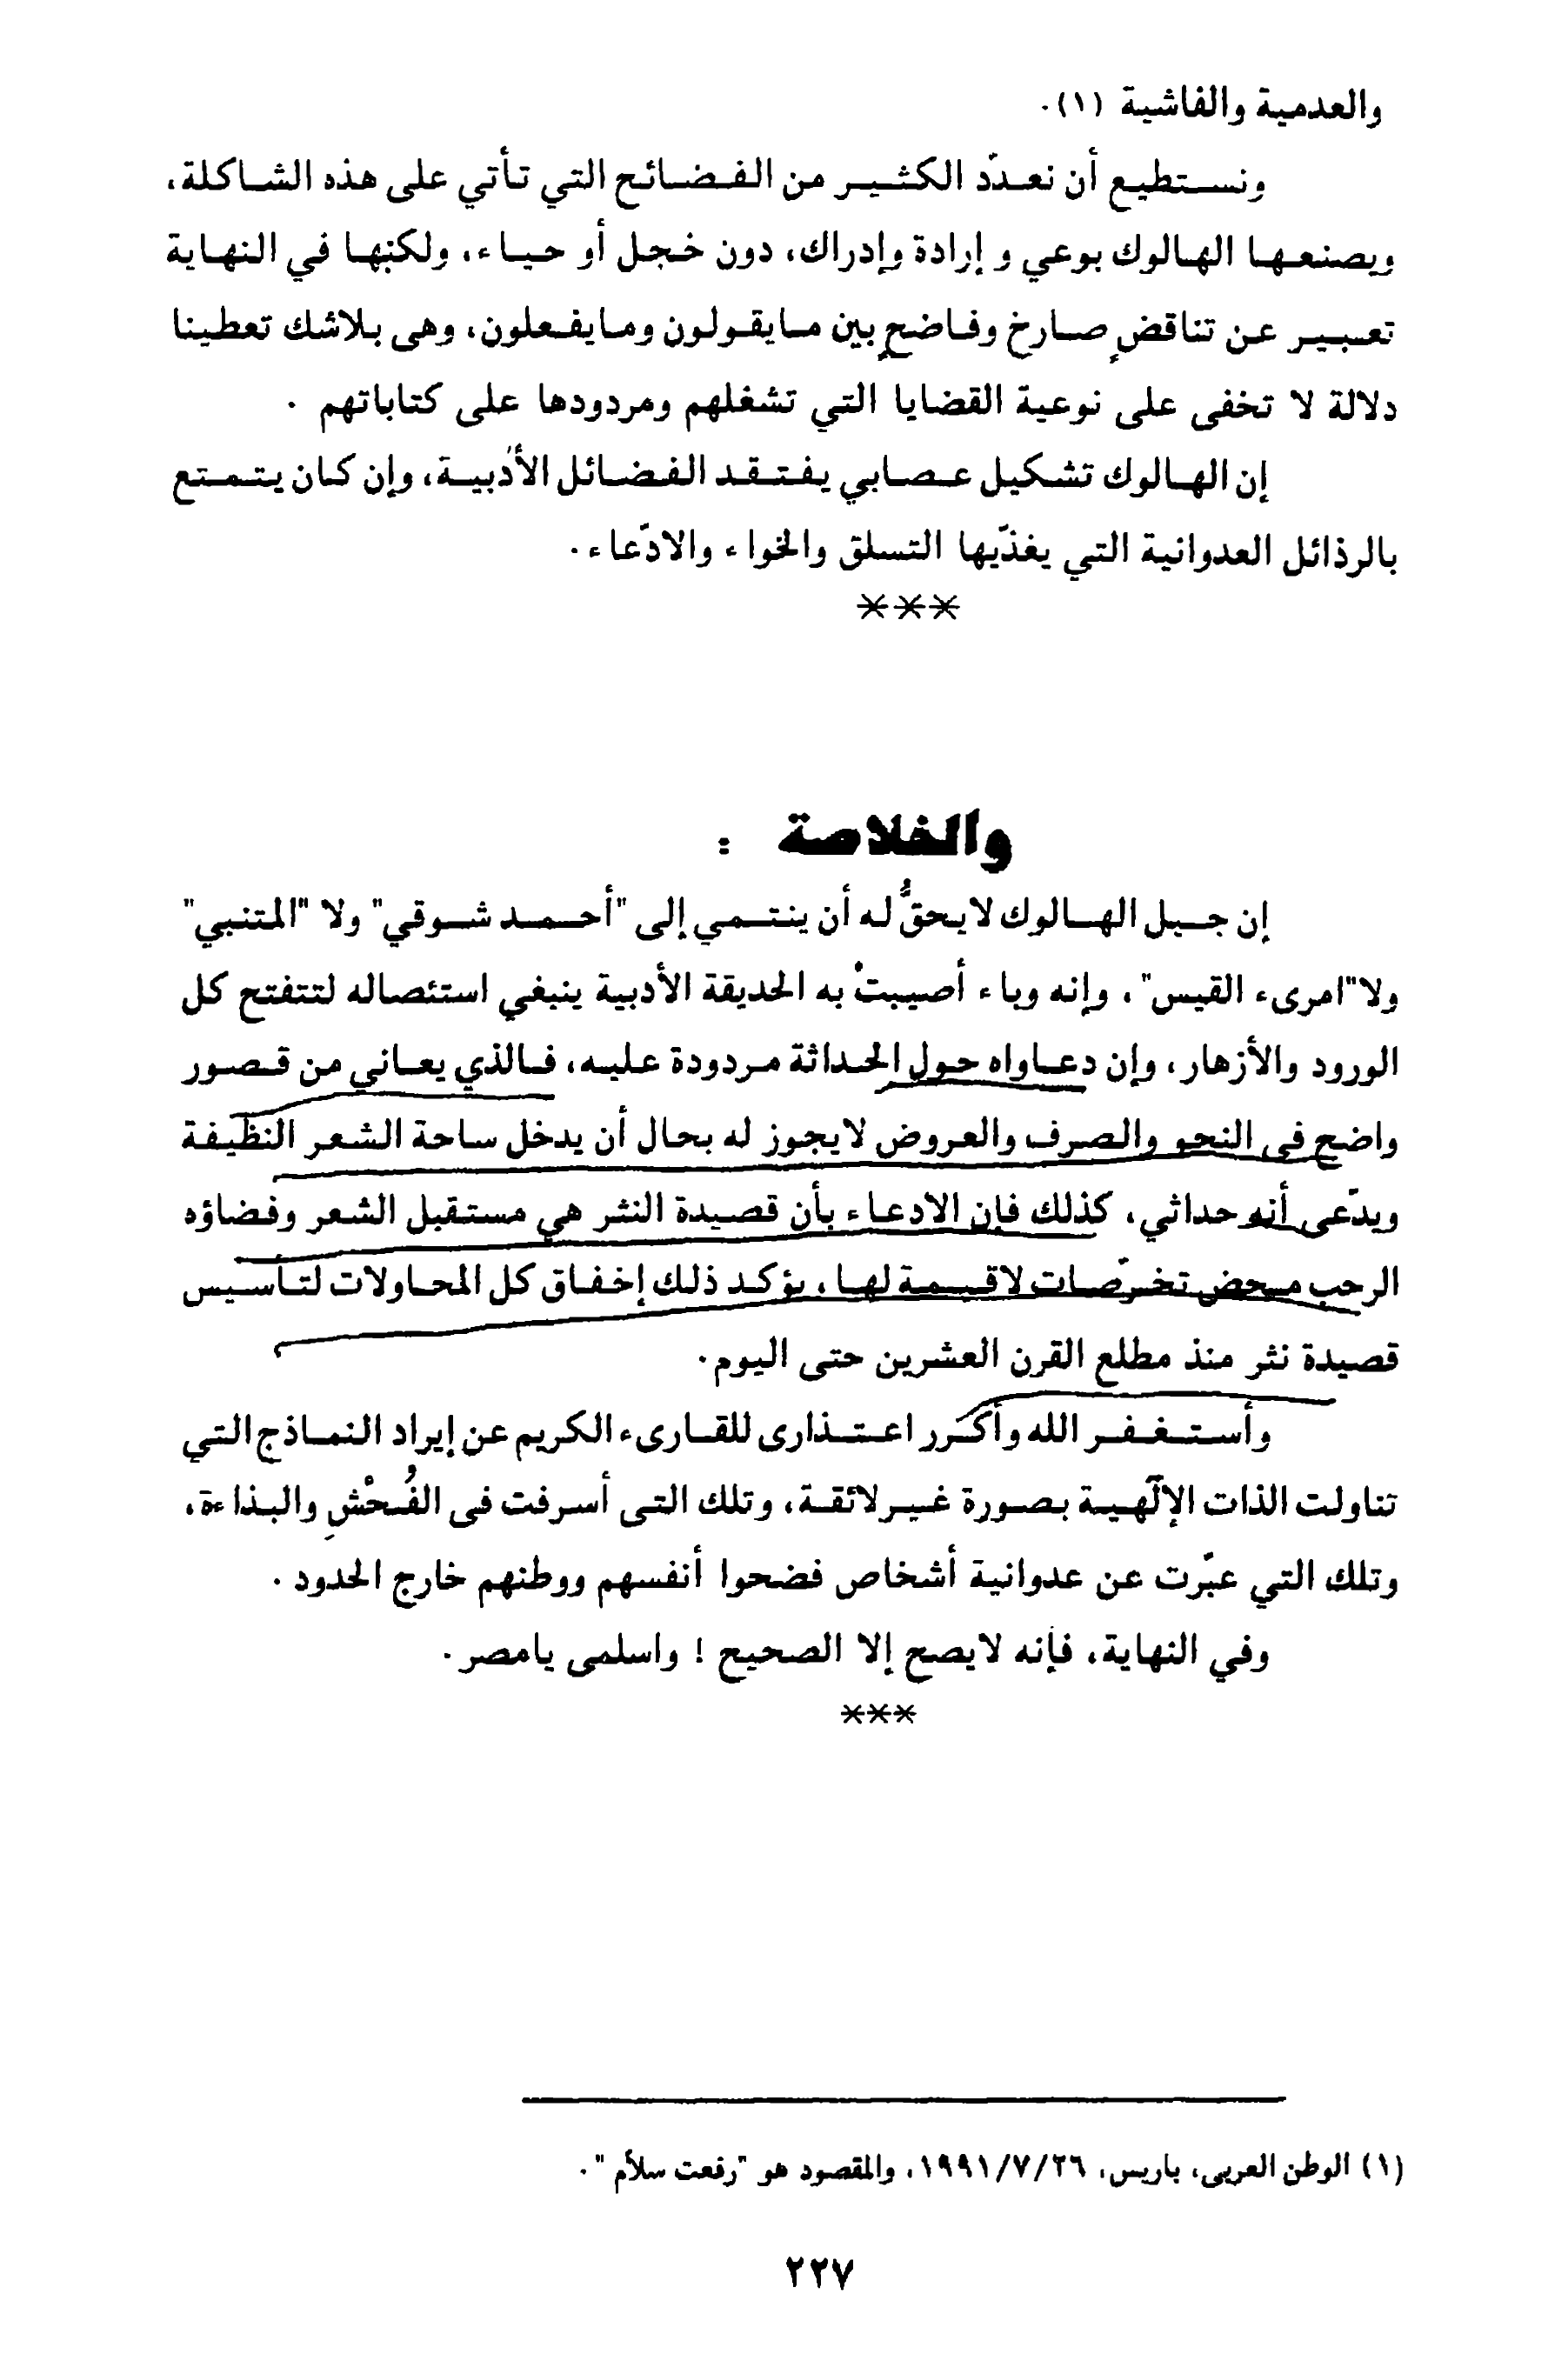 والعدمية والفاشية (١).
ونستطيع أن نعدّد الكثير من الفضائح التي تأتي على هذه الشاكلة،
ويصنعها الهالوك بوعي و إرادة وإدراك، دون خجل أو حياء، ولكنها في النهاية
تعبير عن تناقضٍ صارخ وفاضحٍ بين مايقولون ومايفعلون، وهى بلاشك تعطينا
دلالة لا تخفى على نوعية القضايا التي تشغلهم ومردودها على كتاباتهم .
إن الهالوك تشكيل عصابي يفتقد الفضائل الأدبية، وإن كان يتمتع
بالرذائل العدوانية التي يغذّيها التسلق والخواء والادّعاء.
***
والخلاصة :
إن جيل الهالوك لايحقُّ له أن ينتمي إلى "أحمد شوقي" ولا "المتنبي"
ولا"امرىء القيس"، وإنه وباء أصيبتْ به الحديقة الأدبية ينبغي استئصاله لتتفتح كل
الورود والأزهار، وإن دعاواه حول الحداثة مردودة عليه، فالذي يعاني من قصور
واضح فى النحو والصرف والعروض لايجوز له بحال أن يدخل ساحة الشعر النظيفة
ويدّعى أنه حداثي، كذلك فإن الادعاء بأن قصيدة النثر هي مستقبل الشعر وفضاؤه
الرحب محض تخرّصات لاقيمة لها، يؤكد ذلك إخفاق كل المحاولات لتأسيس
قصيدة نثر منذ مطلع القرن العشرين حتى اليوم.
وأستغفر الله وأكرر اعتذارى للقارىء الكريم عن إيراد النماذج التي
تناولت الذات الإلّهية بصورة غيرلائقة، وتلك التى أسرفت فى الفُحْشِ والبذاءة،
وتلك التي عبّرت عن عدوانية أشخاص فضحوا أنفسهم ووطنهم خارج الحدود .
وفي النهاية، فإنه لايصح إلا الصحيح ! واسلمى يامصر.
***
(١) الوطن العربى، باريس، ١٩٩١/٧/٢٦، والمقصود هو "رفعت سلاّم " .
٢٢٧